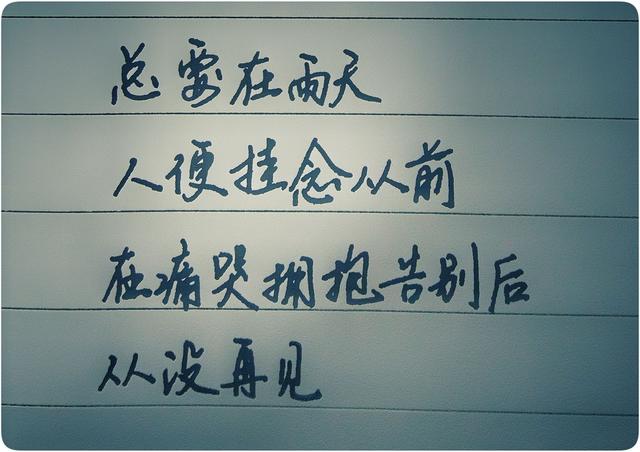 总要在雨天
人便挂念从前
在痛哭拥抱告别后
从没再见